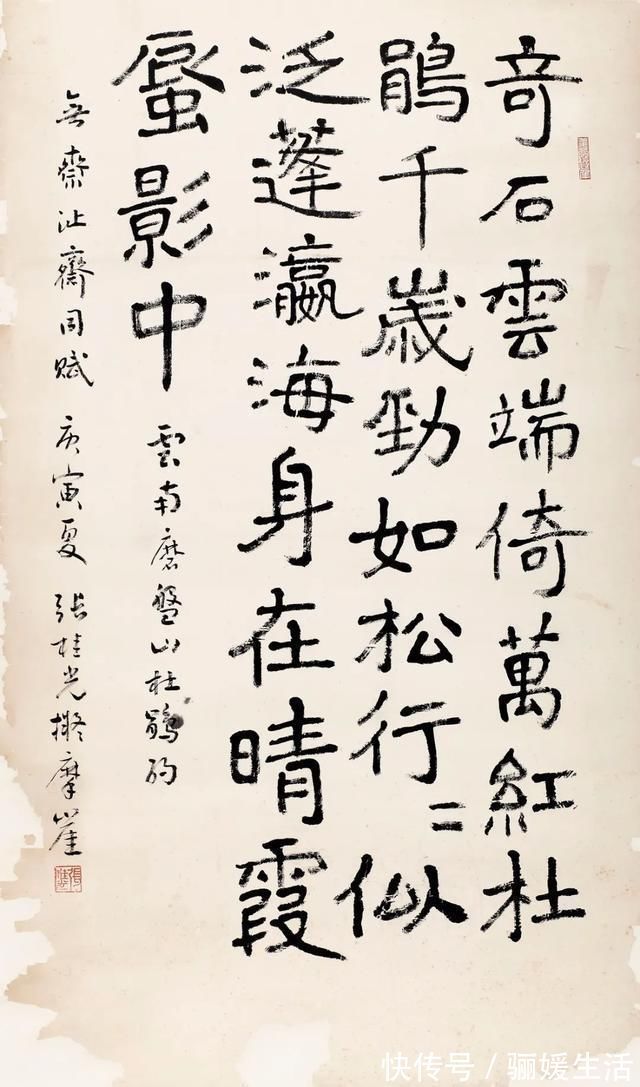 奇石雲端倚萬紅杜
鵑千歲勁如松行〻似
泛蓬瀛海身在晴霞
蜃影中
雲南磨盤山杜鵑約
齋沚齋同賦 庚寅夏 張桂光擬摩崖
快传号 / 骊媛生活